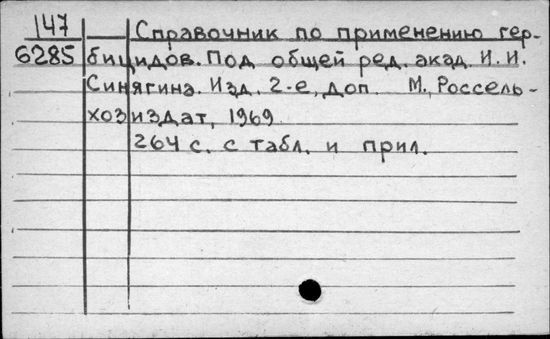 147 Справочник по применению гер-
6285 бицидов. Под общей ред. акад. И. И.
Синягина. Изд. 2-е, доп. М., Россель-
хозиздат, 1969.
264 с. с табл. и прил.